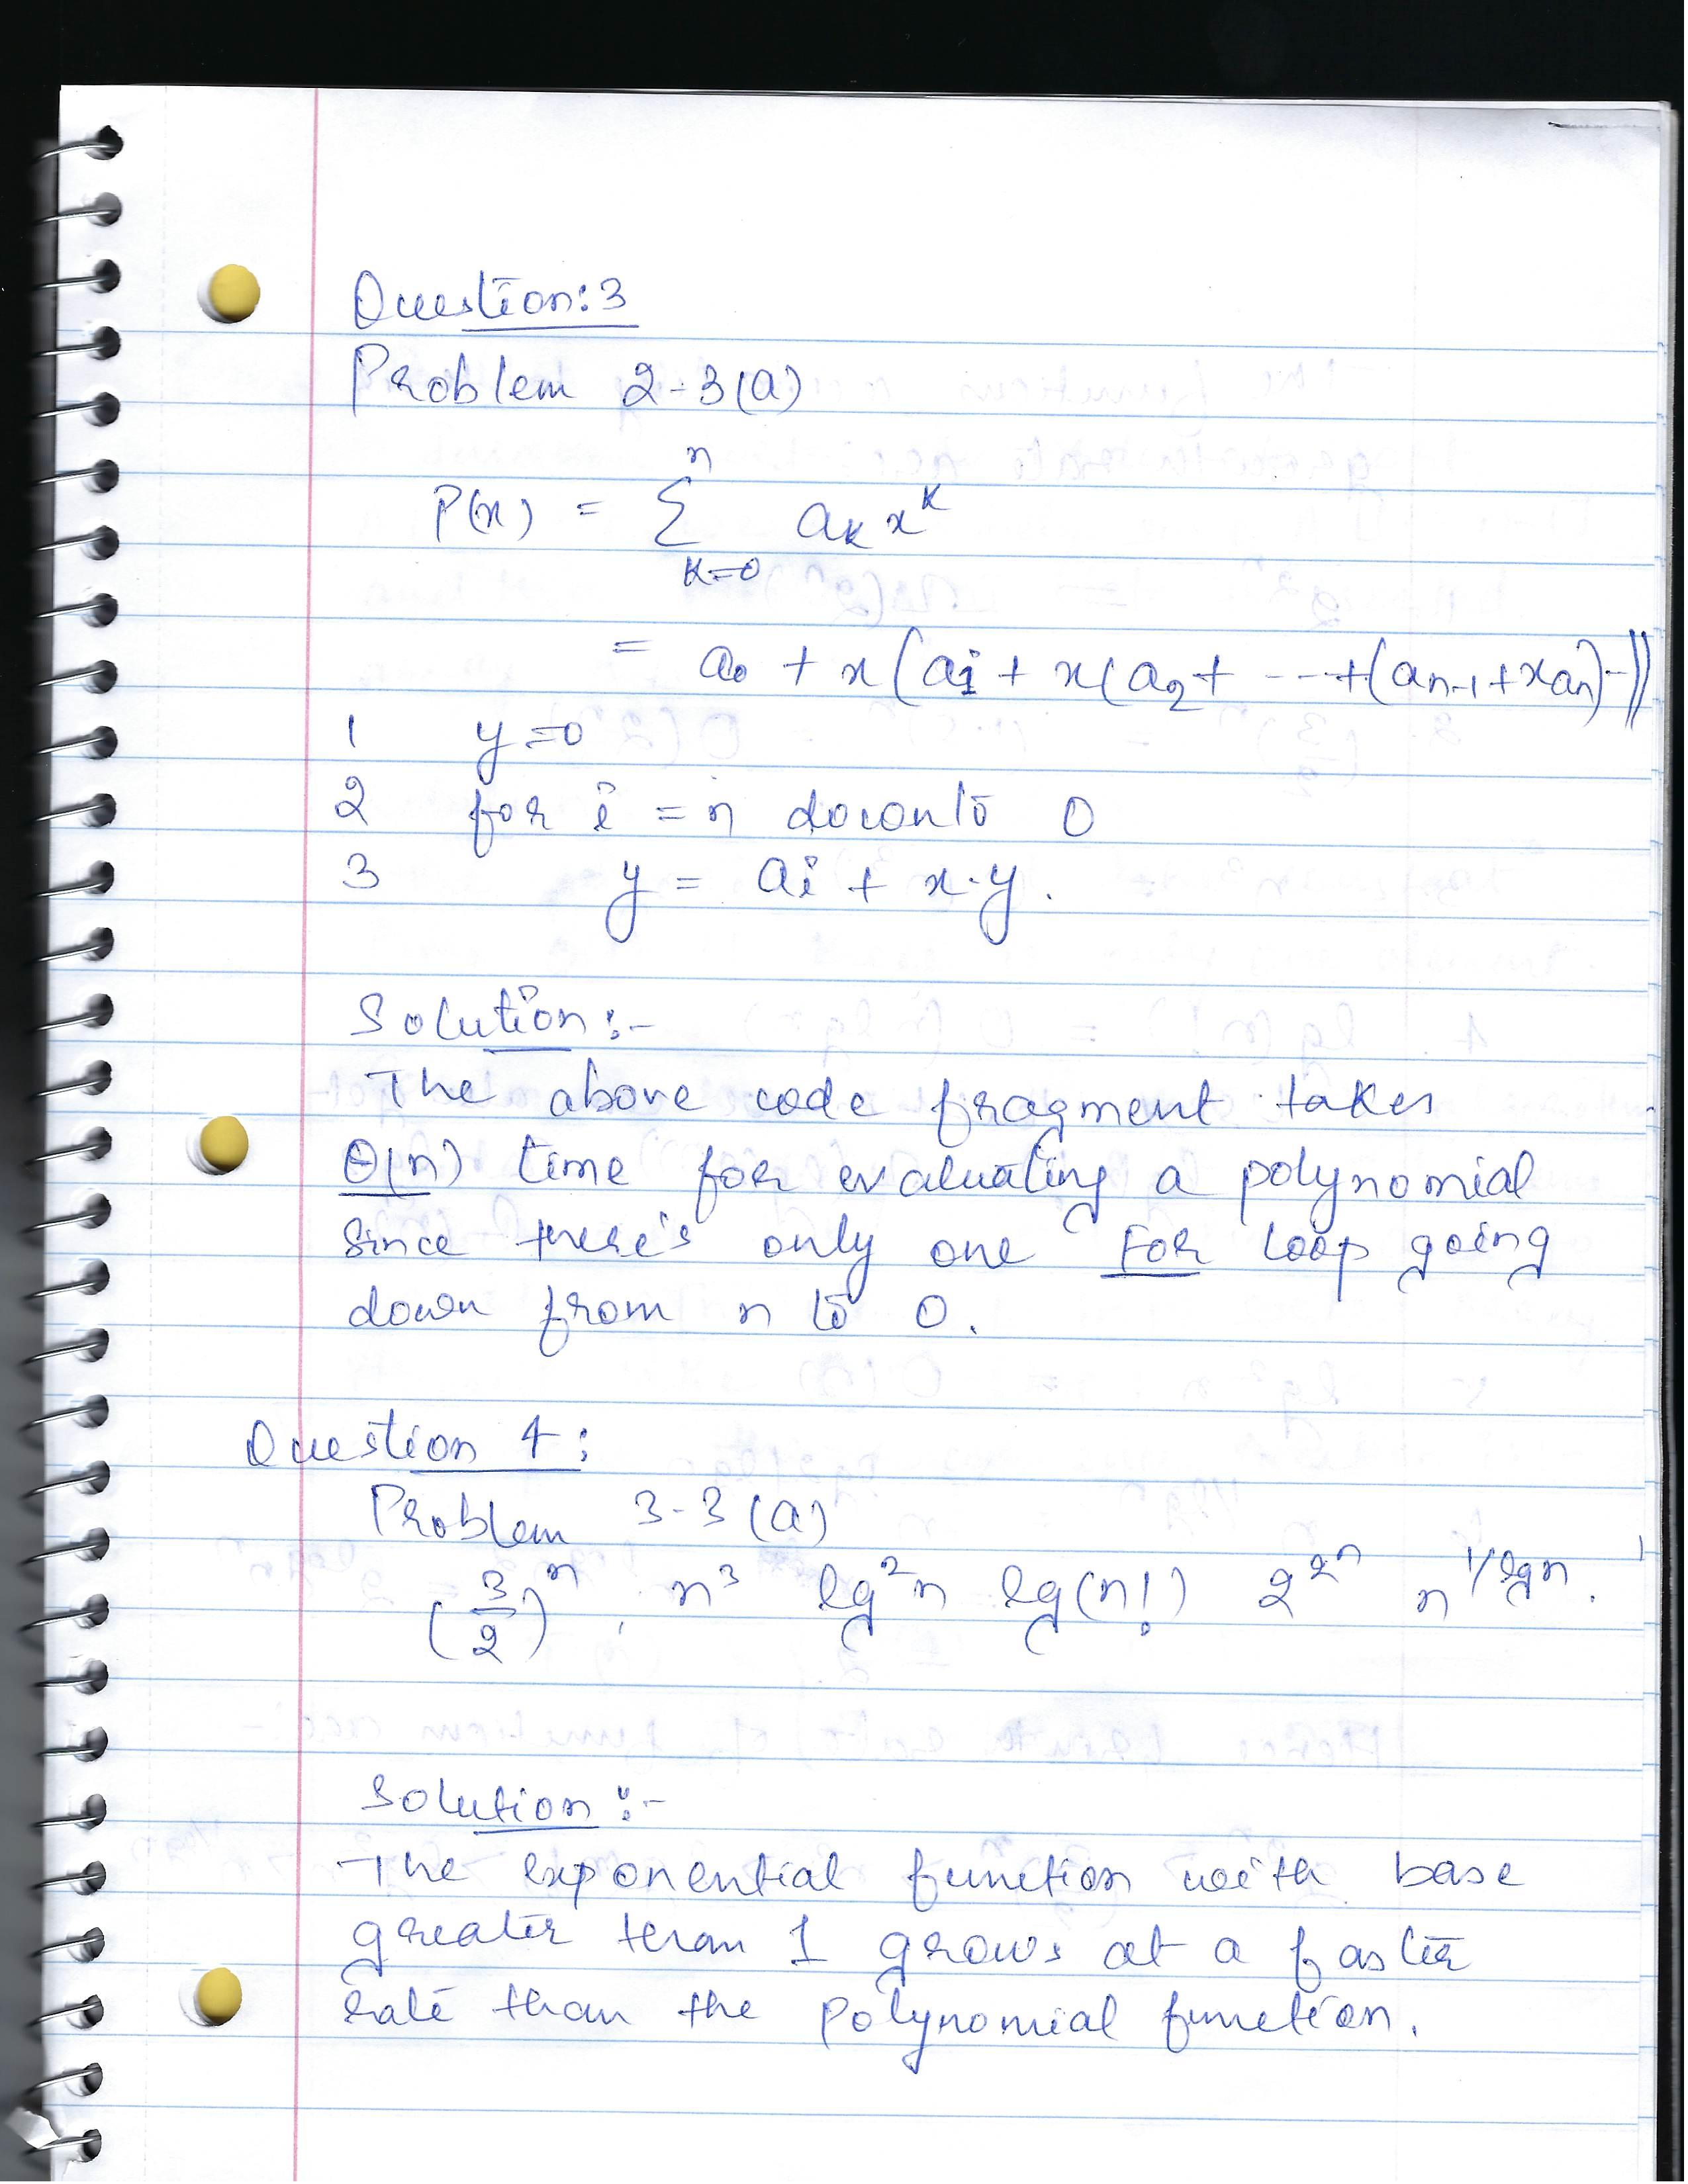 Question: 3
Problem 2-3(a)
P(x) = Σ_{k=0}^{n} a_k x^k
= a₀ + x(a₁ + x(a₂ + ---+(a_{n-1} + xa_n)--))
1 y=0
2 for i = n downto 0
3 y = a_i + x·y.
Solution:-
The above code fragment takes
Θ(n) time for evaluating a polynomial
since there's only one for loop going
down from n to 0.
Question 4:
Problem 3-3(a)
(3/2)^n, n³ lg²n lg(n!) 2^{2^n} n^{1/lgn}.
Solution:-
The exponential function with base
greater than 1 grows at a faster
rate than the polynomial function.